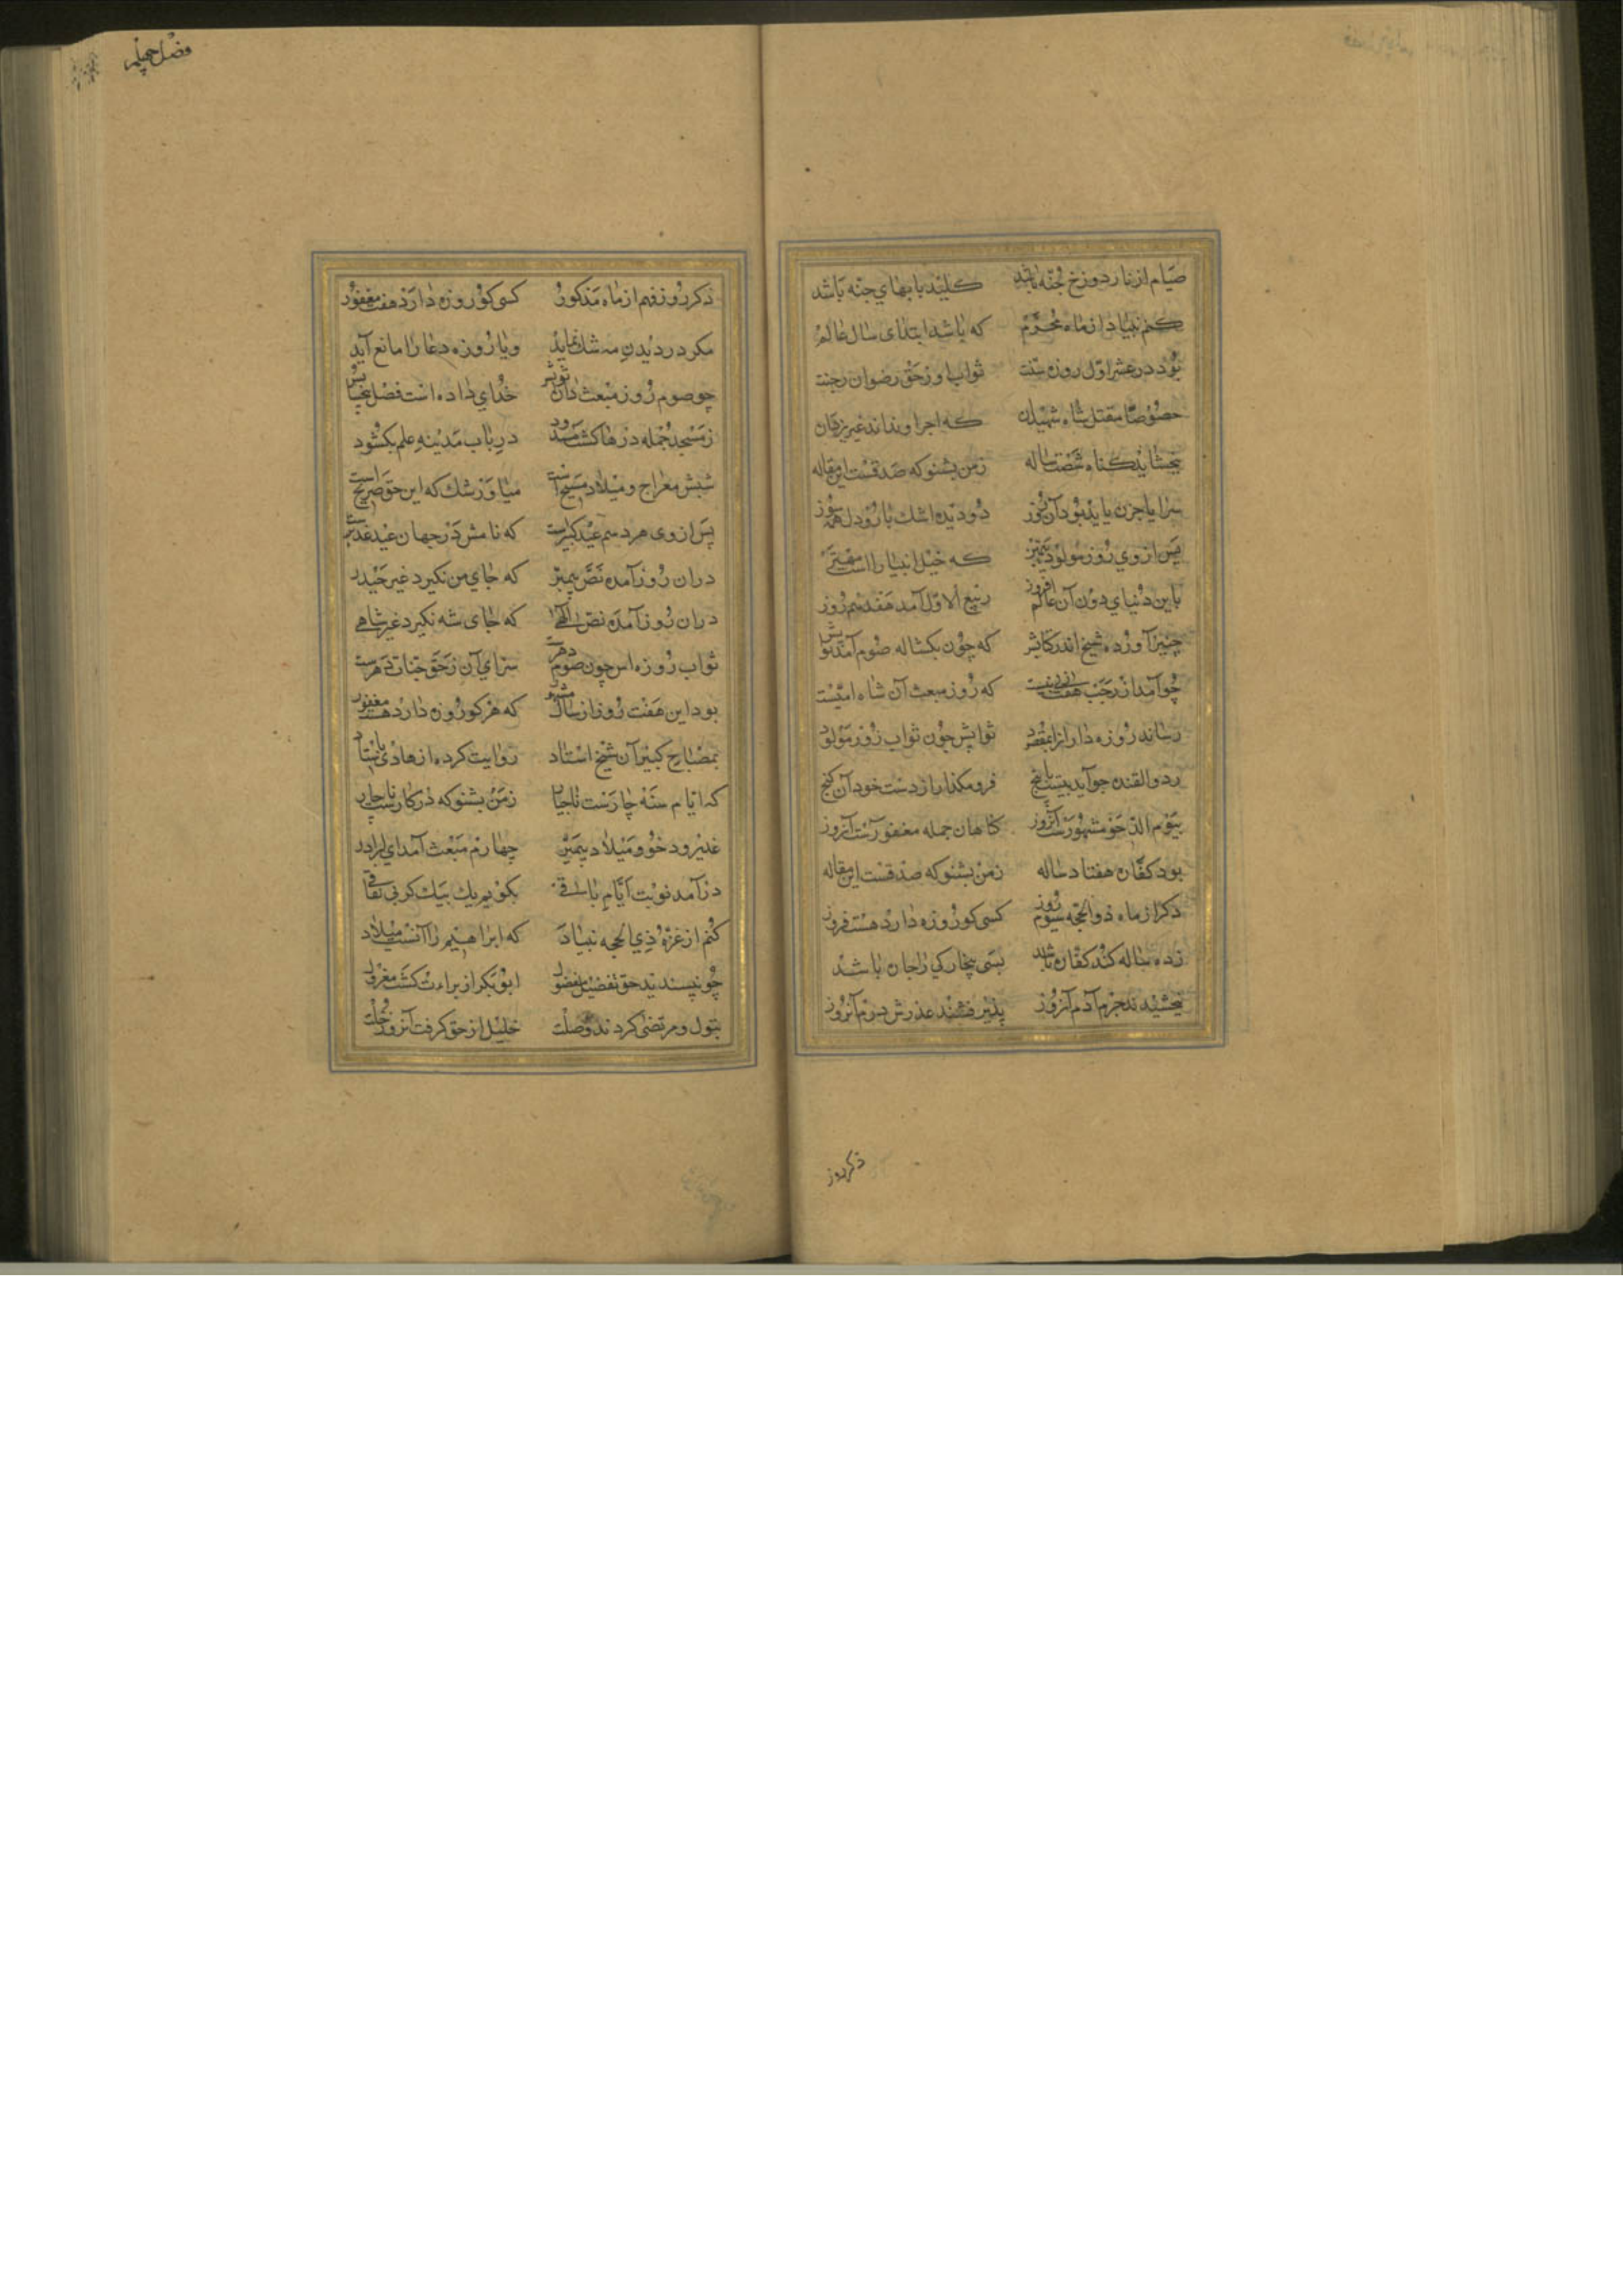 صیام از نار دوزخ جُنّه باشد کلید بابهای جنّه باشد
کنم بنیاد از ماه محرّم که باشد ابتدای سال عالم
بُود در عشر اوّل روزه سنّت ثواب او ز حق رضوان و جنت
خصوصًا مقتل شاه شهیدان که اجر او نداند غیر یزدان
ببخشاید گناه شصت ساله ز من بشنو که صدقست این مقاله
سراپا حزن باید بُود آن روز دُو دیده اشک بار و دل همه سوز
پس از وی رُوز مولود پیمبر که خیل انبیا را است
باین دُنیای دون آن عالم افروز ربیع الاوّل آمد هفدهم رُوز
چنین آورده شیخ اندر که چُون یکساله صوم آمد ثوابش
چُو آمد از رجب هفت که رُوز مبعث آن شاه امیّست
رساند روزه دار از ثوابش چُون ثواب رُوز مولود
ز ذو القعده چو آید بیست با پنج فرو مگذار از دست خود آن گنج
بیَوم الدّحو مشهورست آنروز گناهان جمله مغفورست آنروز
بود کفّاره هفتاد ساله ز من بشنو که صدقست این مقاله
دکر از ماه ذو الحجّه سیوم رُوز کسی کو روزه دارد هست فیروز
ز ده ساله گنه کفّاره باشد بسی بیچارگی را چاره باشد
ببخشیدند جرم آدم آنرُوز پذیرفتند عذرش در دم آنرُوز
ذکر روز
فصل چهلم
دکر رُوز نهم از ماه مذکور کسی کو روزه دارد هست مغفور
مگر در دیدن مه شک نماید و یا روزه دعا را مانع آید
چو صوم رُوز مبعث دان ثوابش خدای داده است فضل
ز مسجد جمله درها گشت مسدود در باب مدینهٔ علم بگشود
شبش معراج و میلاد مسیح است میاور شک که این حق صریح است
پس از وی هژدهم عید کبیرست که نامش در جهان عید غدیرست
در ان رُوز آمده نصّ پیمبر که جای من نگیرد غیر حیدر
در ان رُوز آمده نصّ الٓهی که جای شه نگیرد غیر شاهی
ثواب رُوزه اس چون صوم دهرست سزای آن ز حق جنات
بود این هفت رُوز از سال مشهور که هر کو روزه دارد هست مغفور
بمصباح کبیر آن شیخ استاد روایت کرده از هادی
که ایام سنه چارست ناچار ز من بشنو که در کارست ناچار
غدیر و دحو و میلاد پیمبر چهارم مبعث آمد ای برادر
در آمد نوبت ایّام باقی بگویم یک بیک گر بی نفاقی
کنم از غرّهٔ ذی الحجه بنیاد که ابراهیم را آنست میلاد
چُو نپسندید حق تفضیل مفضول ابو بکر از براءت گشت معزول
بتول و مرتضی کردند وصلت خلیل از حق گرفت آنروز خلّت